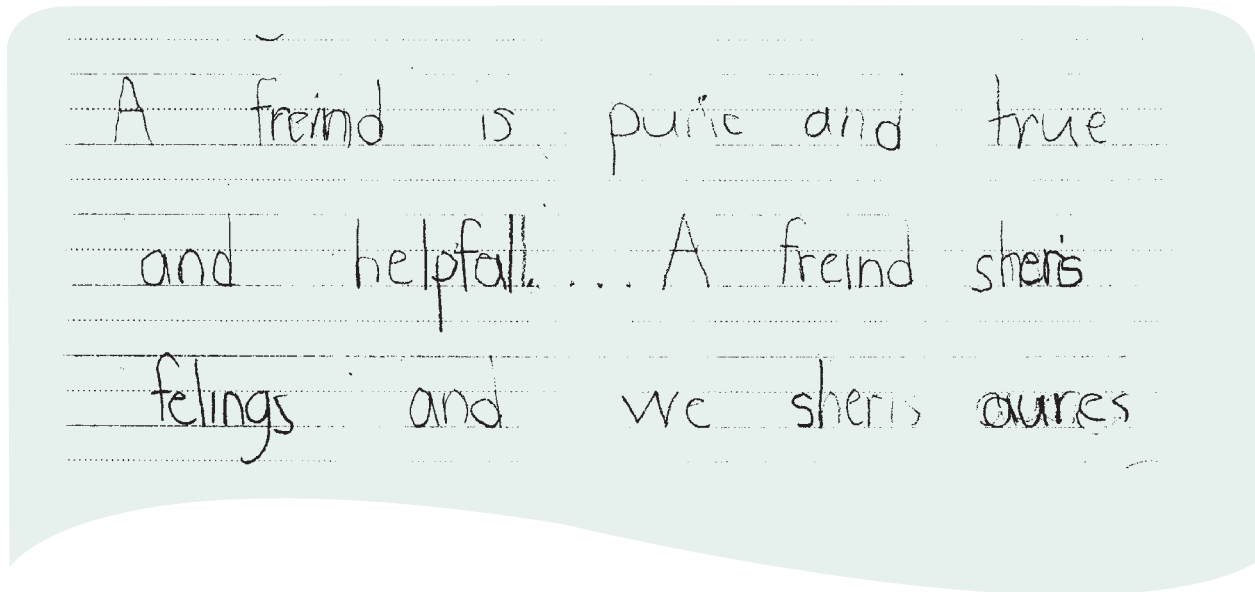 A freind is purie and true
and helpfall.... A freind sheris
felings and we sheris aures